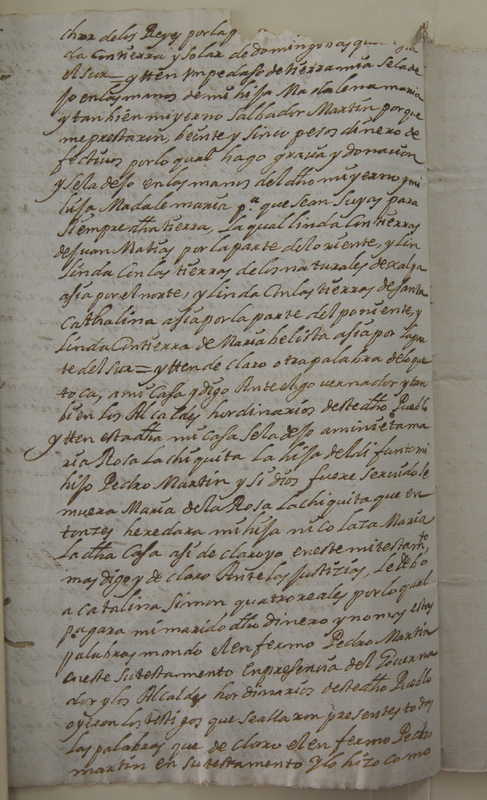 chor de los Reyes por la
da Con tierra y solar de domingo
el sur = y tten Un pedaso de tierra mia sela de
jo en las manos de mi hissa Madalena maria
y tambien mi yerno Salbador Martin por que
me prestaron, beinte y sinco pesos dinero de
fectivos por lo qual hago gracia y donacion
y sela dejo en las manos del dho mi yerno y mi
hissa Madale maria pa que sean suyas para
siempre dha tierra, la qual linda Con tierras
de Juan Matias por la parte del oriente, y lin
linda Con las tierras de los naturales de xalpa
asia por el norte, y linda Con las tierras de santa
Cathalina asia por la parte del poniente, y
linda Con tierra de Maria belista asia por la par
te del sur = y tten de claro otra palabra de lo que
toca, a mi Casa y digo Ante el go vernador y tan
bien los Alcaldes hordinarios deste dho Pueblo
y tten esta dha mi Casa sela dejo a mi nieta ma
ria Rosa la chiquita la hissa del di funto mi
hijo Pedro Martin y si dios fuere servido se
muera Maria de la Rosa la chiquita que en
tonzes heredara mi hissa nicolaza Maria
la dha Casa asi de claro yo en este mi testamto
mas digo y de claro Ante las Justizias, le debo
a Catalina Simon quatro reales por lo qual
pagara mi marido dho dinero y no mas estas
palabras mando el en fermo Pedro Martin
en este su testamento en presencia del Governa
dor y los Alcaldes hor dinarios deste dho Pueblo
oyeron los testigos que se allaron presentes todas
las palabras que de claro el en fermo Pedro
martin en su testamento y lo hizo como